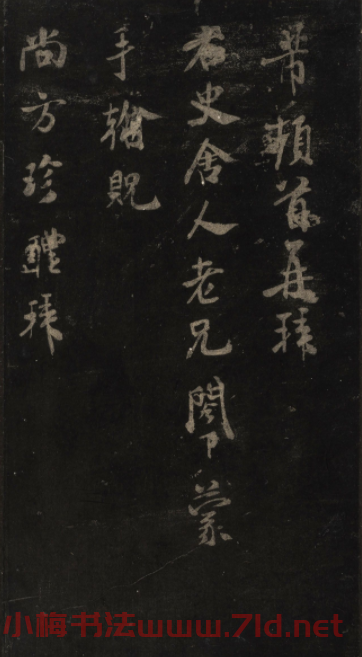 芾頓首再拜
右史舍人老兄閣下蒙
手翰貺
尚方珍醴拜
小梅书法www.7ld.net